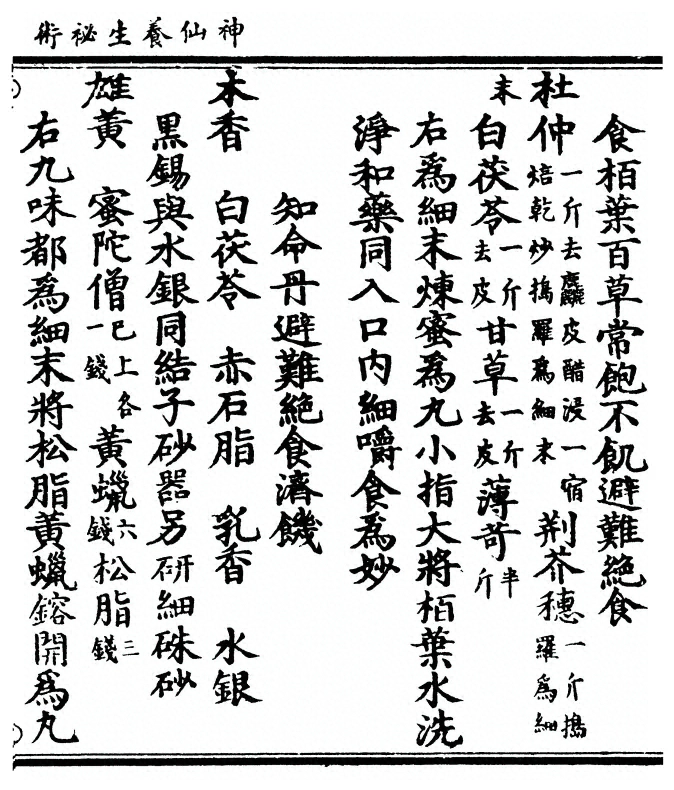 神仙養生祕術
食栢葉百草常飽不飢避難絶食
杜仲一斤去麤皮醋浸一宿焙乾炒搗羅爲細末荆芥穗一斤搗羅爲細
末白茯苓一斤去皮甘草一斤去皮薄苛半斤
右爲細末煉蜜爲丸小指大將栢葉水洗
淨和藥同入口内細嚼食爲妙
知命丹避難絶食濟饑
木香 白茯苓 赤石脂 乳香 水銀
黑錫與水銀同結子砂器另研細硃砂
雄黃 蜜陀僧已上各一錢黃蠟六錢松脂三錢
右九味都爲細末將松脂黃蠟鎔開爲丸